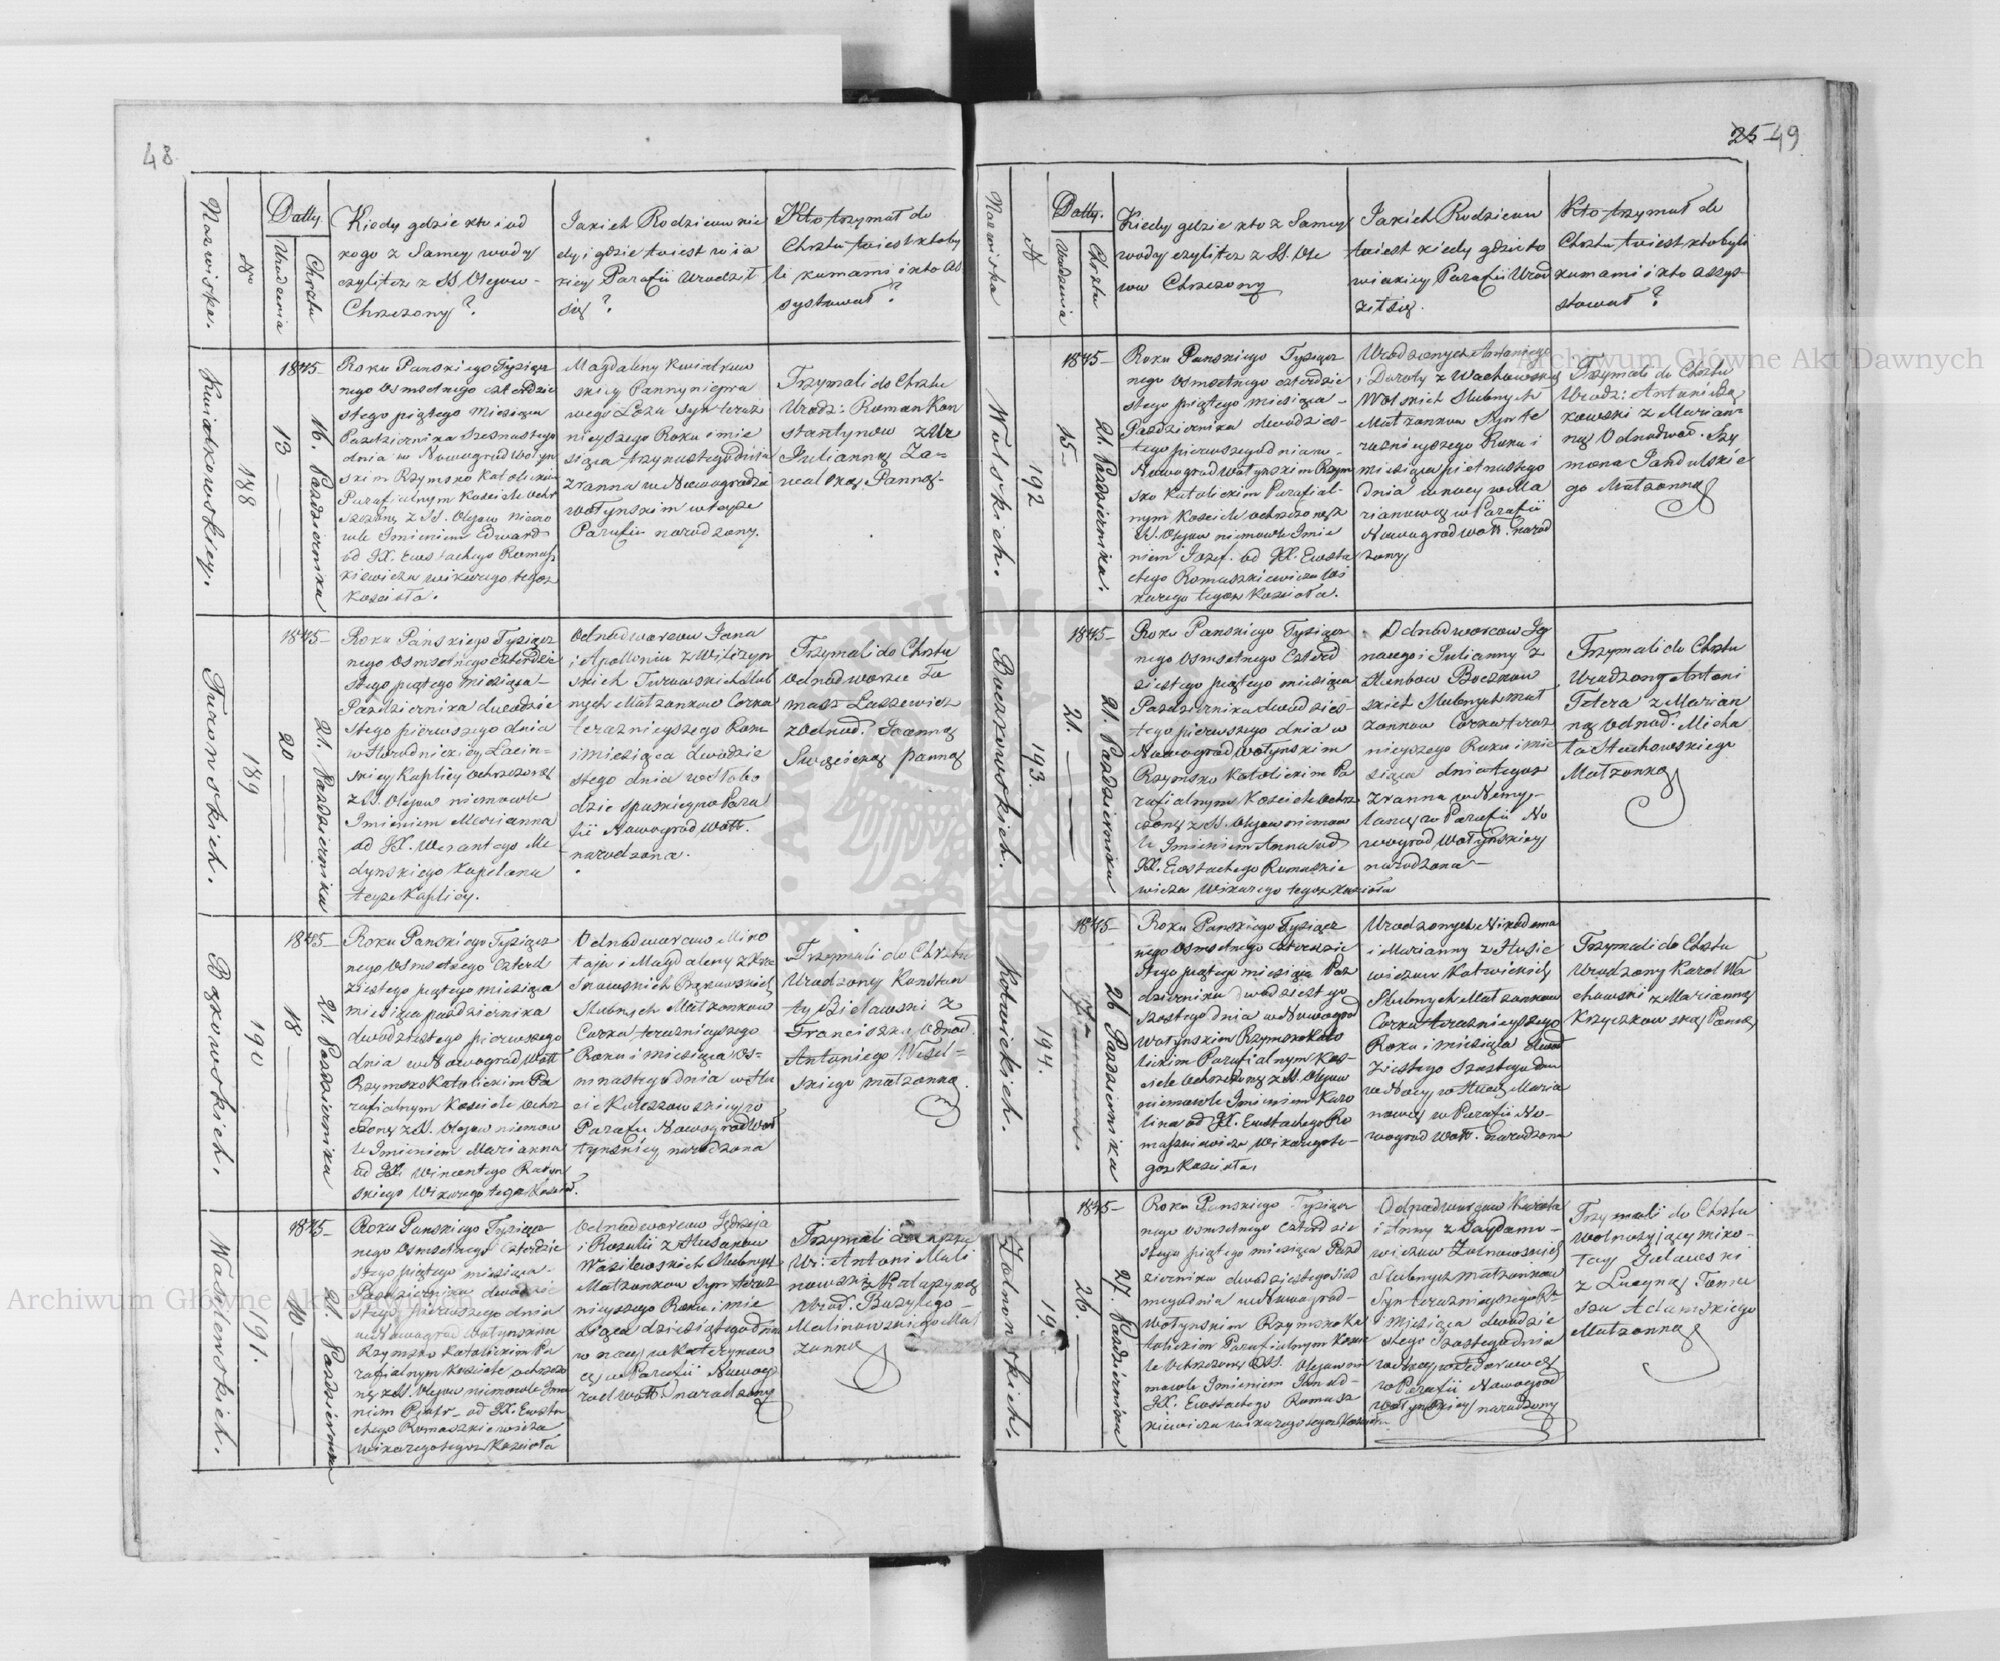 48
Nazwiska.
Nro
Datty
Urodzenia
Chrztu
Kiedy gdzie kto i od
kogo z Samey wody
czylitez z SS Olejow
Chrzczony?
Jakich Rodzicow kie
dy i gdzie twiest w ia
kiey Parafii Urodził
się?
Kto trzymał do
Chrztu twiest ktoby
li kumami i kto as
systował?
Kwiatkowskiey.
188
1845
13
16. Pazdziernika
Roku Panskiego Tysiącz
nego Osmsetnego czterdzie
stego piątego Miesiąca
Pazdziernika Szesnastego
dnia w Nowogradwołyn
skim Rzymsko Katolickim
Parafialnym Kosciele ochr
szczony z SS. Olejow niemo
wle Jmieniem Edward
od JX. Eustachego Romasz
kiewicza wikarego tegoz
Koscioła.
Magdaleny Kwiatkow
skiey Panny niepra
wego Łoza Syn teraz
nieyszego Roku i mie
siąca trzynastego dnia
z ranna w Nowogradzie
wołynskim w teyze
Parafii narodzony.
Trzymali do Chrztu
Urodz: Roman Kon
stantynow z Ur
Julianną Za-
Panną.
Turowskich.
189
1845
20
21. Pazdziernika
Roku Pańskiego Tysiącz
nego Osmsetnego czterdzie
stego piątego Miesiąca
Pazdziernika dwudzie
stego pierwszego dnia
w Horodnickiey Łacin-
skiey Kaplicy ochrzczona
z SS. Olejow niemowle
Jmieniem Marianna
od JX. Werantego Me
dynskiego Kapelana
teyze Kaplicy.
Odnodworcow Jana
i Apollonii z Wilczyn
skich Turowskich slub
nych Małzonkow Corka
teraznieyszego Roku
i miesiąca dwudzie
stego dnia w Słobo
dzie w Para
fii Nowograd Woł.
narodzona.
Trzymali do Chrztu
Odnodworzec To
masz Laszewicz
z Odnod. Joanną
Swięcicką Panną
Bąkowskich.
190
1845
18
21. Pazdziernika
Roku Panskiego Tysiącz
nego Osmsetnego Czterd
ziestego piątego miesiąca
miesiąca pazdziernika
dwudziestego pierwszego
dnia w Nowograd Woł
Rzymsko Katolickim Pa
rafialnym Kosciele ochrz
czona z SS. Olejow niemow
le Jmieniem Marianna
od JX. Wincentego Ratyn
skiego Wikarego tegoz Koscioł.
Odnodworcow Miko
łaja i Magdaleny z
Bąkowskich
Slubnych Małzonkow
Corka teraznieyszego
Roku i miesiąca os-
mnastego dnia w Hu
cie Kuleszowskiey w
Parafii Nowogradwo
łynskiey narodzona
Trzymali do Chrztu
Urodzony Konstan
ty Bielawski z
Franciszką Odnod.
Antoniego Wisel-
skiego małzonką
Wasilewskich.
191.
1845
10
21. Pazdziernika
Roku Panskiego Tysiącz
nego osmsetnego Czterdzie
stego piątego miesiąca
Pazdziernika dwudzie
stego pierwszego dnia
w Nowograd Wołynskim
Rzymsko Katolickim Pa
rafialnym Kosciele ochrzczo
ny z SS. Olejow niemowle Jmie
niem Piotr od JX. Eusta
chego Romaszkiewicza
wikarego tegoz Kosciola
Odnodworcow Jędrzeja
i Rozalii z Husakow
Wasilewskich Slubnych
Małzonkow Syn teraz
nieyszego Roku i mie
siąca dziesiątego dnia
w nocy w Katerynow
ce w Parafii Nowog
rad Woł. narodzony
Trzymali do Chrztu
Ur: Antoni Mali
nowski z Katarzyną
Urod. Bazylego
Malinowskiego Mał
zonką
25 49
Nazwiska
N
Datty.
Urodzenia
Chrztu
Kiedy gdzie kto z Samey
wody czylitez z SS. Ole
iow Chrzczony
Jakich Rodzicow
twiest kiedy gdzie to
w iakiey Parafii Urod
ził się.
Kto trzymał do
Chrztu twiest kto byli
kumami i kto assys-
tował?
Wolskich.
192
1845
15
21. Pazdziernika.
Roku Panskiego Tysiącz
nego Osmsetnego czterdzie
stego piątego miesiąca
Pazdziernika dwudzies-
tego pierwszego dnia w
Nowogradwołynskim Rzym
sko Katolickim Parafial-
nym Kosciele ochrzczony z
SS. Olejow niemowle Jmie
niem Jozef od JX. Eusta
chego Romaszkiewicza Wi
karego tegoz Kosciola.
Urodzonych Antoniego
i Doroty z Wachowskich
Wolskich Slubnych
Małzonkow Syn te
raznieyszego Roku i
miesiąca pietnastego
dnia w nocy w Ma
rianowce w Parafii
Nowogradwoł. narod
zony
Trzymali do Chrztu
Urodz: Antoni Bą
kowski z Marian
ną Odnodwor. Szy
mona Jandulskie
go Małzonką
Boczkowskich.
193.
1845
21.
21. Pazdziernika
Roku Panskiego Tysiącz
nego Osmsetnego Czterd
ziestego piątego miesiąca
Pazdziernika dwudzies-
tego pierwszego dnia w
Nowogradwołynskim
Rzymsko Katolickim Pa
rafialnym Kosciele ochrz
czony z SS. Olejow niemow
le Jmieniem Anna od
JX. Eustachego Romaszkie
wicza Wikarego tegoz Kosciola
Odnodworcow Jg
nacego i Julianny z
Boczkow
skich Slubnych Mał
zonkow Corka teraz
nieyszego Roku i mie
siąca dnia tegoz
z ranna w Niemy-
lance w Parafii No
wogradwołynskiey
narodzona
Trzymali do Chrztu
Urodzony Antoni
Tetera z Marian
ną Odnod. Micha
ła Stachowskiego
Małzonką
Kotwickich.
194.
1845
26 Pazdziernika
Roku Panskiego Tysiącz
nego Osmsetnego Czterdzie
stego piątego miesiąca Paz
dziernika dwudziestego
szostego dnia w Nowograd
Wołynskim Rzymskokato
lickim Parafialnym Kos-
ciele ochrzczona z SS. Olejow
niemowle Jmieniem Karo
lina od JX. Eustachego Ro
maszkiewicza Wikarego te-
goz Kosciola.
Urodzonych Nikodema
i Marianny z Husie
wiczow Kotwickich
Slubnych Małzonkow
Corka teraznieyszego
Roku i miesiąca dwud
ziestego Szostego dnia
w Nocy w Hucie Maria
nowce w Parafii No-
wograd Woł. narodzona
Trzymali do Chrztu
Urodzony Karol Wa
chowski z Marianną
Krzyczkowską Panną
Żołnowskich.
19
1845
26.
27. Pazdziernika
Roku Panskiego Tysiącz
nego osmsetnego czterdzie
stego piątego miesiąca Pazd
ziernika dwudziestego siod
mego dnia w Nowograd-
wołynskim Rzymskoka
tolickim Parafialnym Kosc
iele ochrzczony z SS. Olejow nie
mowle Jmieniem Jan od
JX. Eustachego Romasz
kiewicza wikarego tegoz Kosciola
Odnodworcow
i Anny z
wiczow Żołnowskich
Slubnych małzonkow
Syn teraznieyszego Ro
i miesiąca dwudzie
stego Szostego dnia
w Parafii Nowograd
wołynskiey narodzony
Trzymali do Chrztu
wolnozyiący Miko-
łay Galewski
z Lucyną Toma
sza Adamskiego
Małzonką
Archiwum Główne Akt Dawnych
Archiwum Główne Akt Dawnych